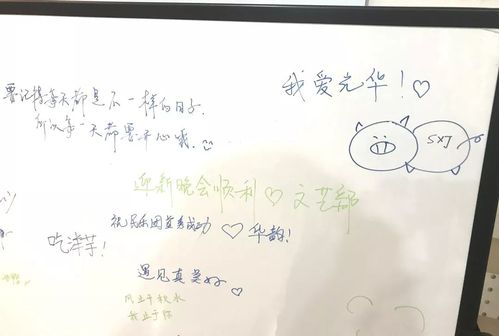 要记得每天都是不一样的日子
所以每一天都要开心哦.
我爱光华！♡
SXJ
迎新晚会顺利♡文艺部
祝民乐团首秀成功♡华韵！
吃洋芋！
遇见真美好♡
风立于秋水
我立于你